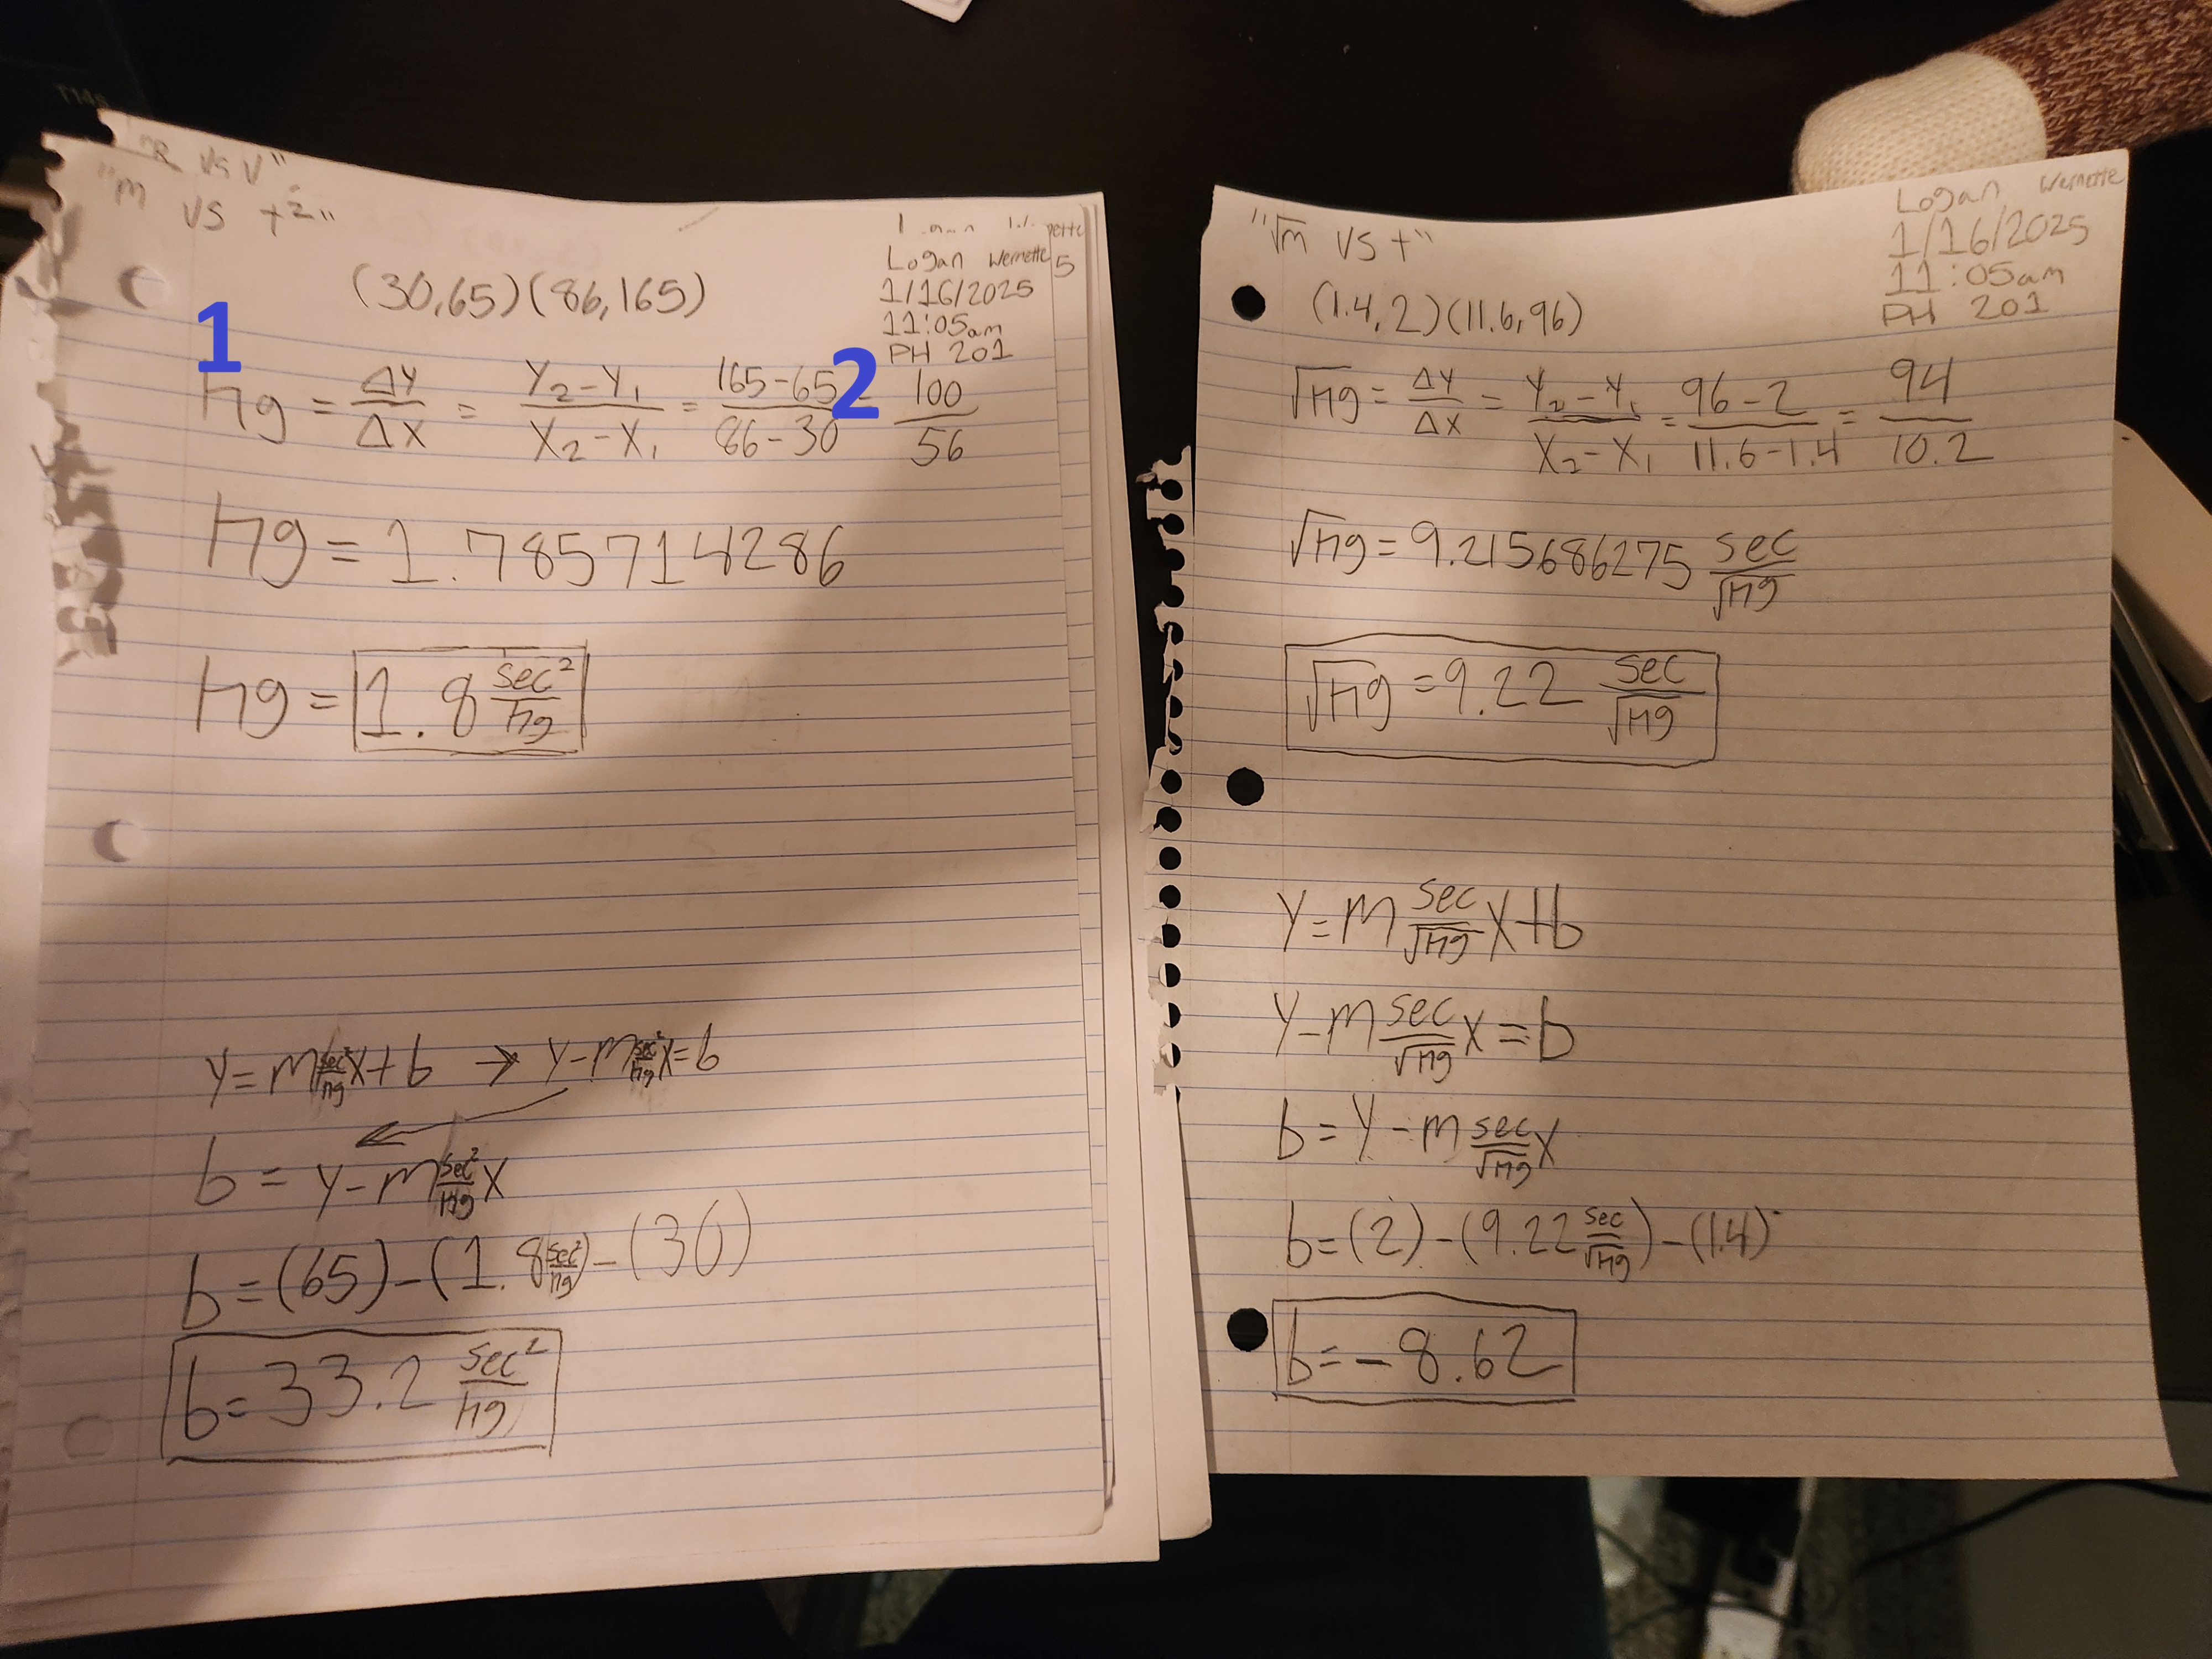 "R vs V"
"m vs t²"
Logan Wernette
1/16/2025
11:05am
PH 201
(30,65)(86,165)
1
2
Hg = ΔY/ΔX = Y₂-Y₁/X₂-X₁ = 165-65/86-30 100/56
Hg = 1.785714286
Hg = 1.8 sec²/Hg
Y = m sec²/Hg X + b → Y - m sec²/Hg X = b
b = Y - m sec²/Hg X
b = (65) - (1.8 sec²/Hg) - (30)
b = 33.2 sec²/Hg
"√m vs t"
Logan Wernette
1/16/2025
11:05am
PH 201
(1.4,2)(11.6,96)
√Hg = ΔY/ΔX = Y₂-Y₁/X₂-X₁ = 96-2/11.6-1.4 = 94/10.2
√Hg = 9.215686275 sec/√Hg
√Hg = 9.22 sec/√Hg
Y = m sec/√Hg X + b
Y - m sec/√Hg X = b
b = Y - m sec/√Hg X
b = (2) - (9.22 sec/√Hg) - (1.4)
b = -8.62